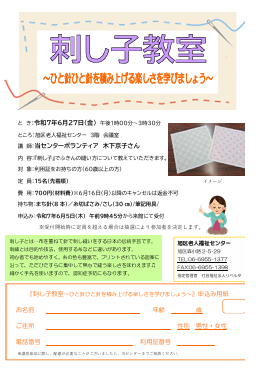 刺し子教室
～ひと針ひと針を積み上げる楽しさを学びましょう～
と き：令和7年6月27日(金) 午後1時00分～3時30分
ところ：旭区老人福祉センター 3階 会議室
講 師：当センターボランティア 木下京子さん
内 容：『刺し子』でふきんの縫い方について教えていただきます。
対 象：利用証をお持ちの方(60歳以上の方)
定 員：15名(先着順)
費 用：700円(材料費)※6月16日(月)以降のキャンセルは返金不可
持ち物：まち針(8本)/お裁ばさみ/さし(30㎝)/筆記用具/
申込み：令和7年6月5日(木) 午前9時45分から来館にて受付
※受付開始時に定員を超える場合は抽選により参加者を決定します。
イメージ
刺し子とは…布を重ねて刺し縫いをする日本の伝統手芸です。
初心者でも始めやすく、糸の色も豊富で、プリントされている図案に
沿って、ただひたすらに集中して無心で縫う楽しさを味わえますよ
細かく手先を使いますので、認知症予防にもなります。
旭区老人福祉センター
旭区森小路2-5-29
TEL:06-6955-1377
FAX:06-6955-1398
『刺し子教室～ひと針ひと針を積み上げる楽しさを学びましょう～』申込み用紙
お名前
年齢 歳
ご住所
性別 男性・女性
電話番号
利用証番号